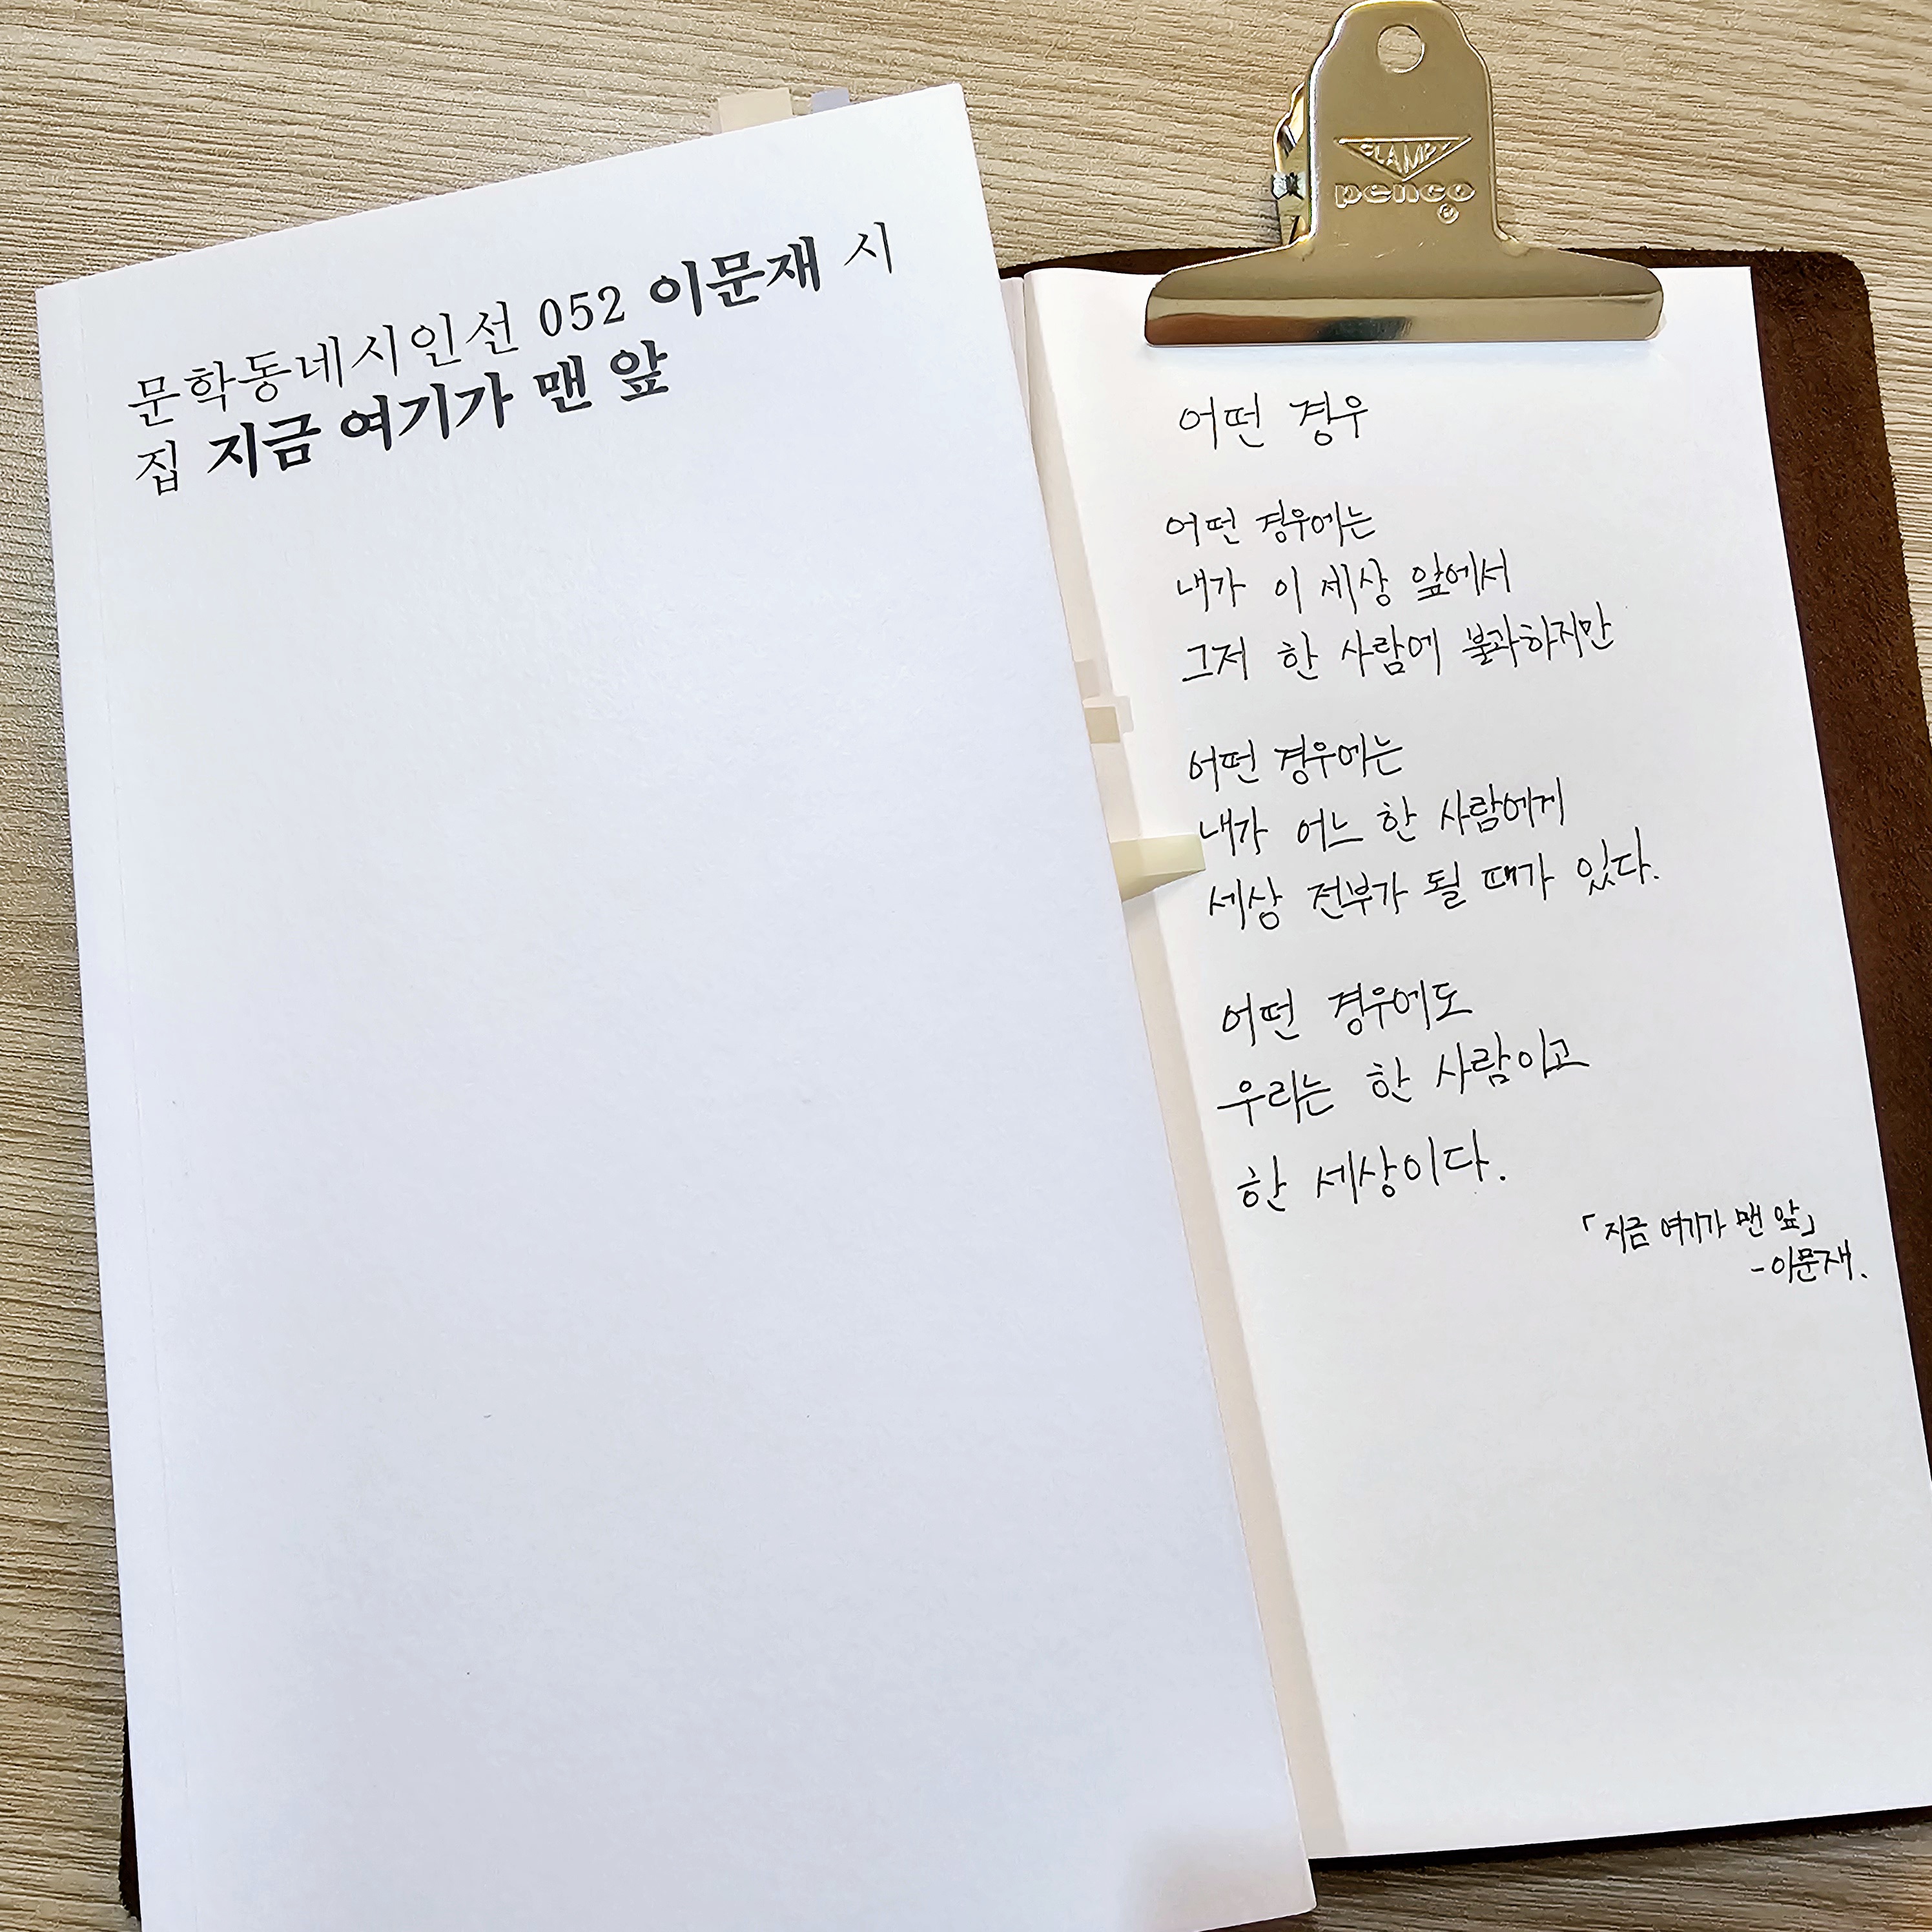 문학동네시인선 052 이문재 시
집 지금 여기가 맨 앞
CLAMPY
penco
®
어떤 경우
어떤 경우에는
내가 이 세상 앞에서
그저 한 사람에 불과하지만
어떤 경우에는
내가 어느 한 사람에게
세상 전부가 될 때가 있다.
어떤 경우에도
우리는 한 사람이고
한 세상이다.
「지금 여기가 맨 앞」
-이문재.